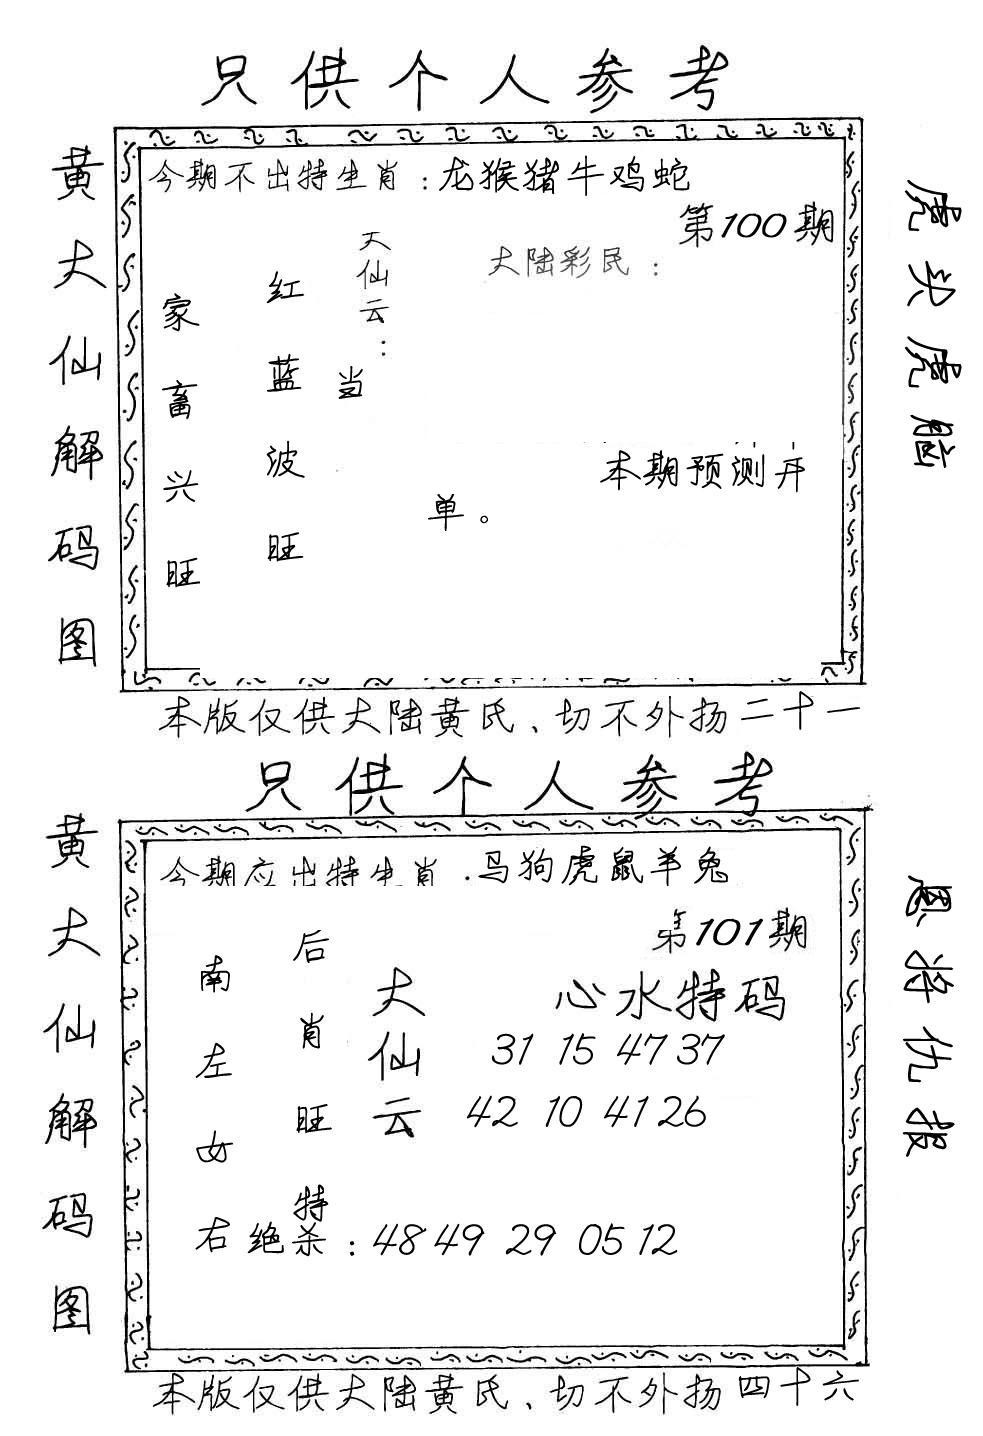 只供个人参考
黄大仙解码图
今期不出特生肖：龙猴猪牛鸡蛇
第100期
大陆彩民：
大仙云：
红蓝波旺
家畜兴旺
当
本期预测开
单。
虎头虎脑
本版仅供大陆黄氏、切不外扬二十一
只供个人参考
黄大仙解码图
今期应出特生肖：马狗虎鼠羊兔
第101期
后肖旺特
南左女右
大仙云
心水特码
31 15 47 37
42 10 41 26
绝杀：48 49 29 05 12
恩将仇报
本版仅供大陆黄氏、切不外扬四十六